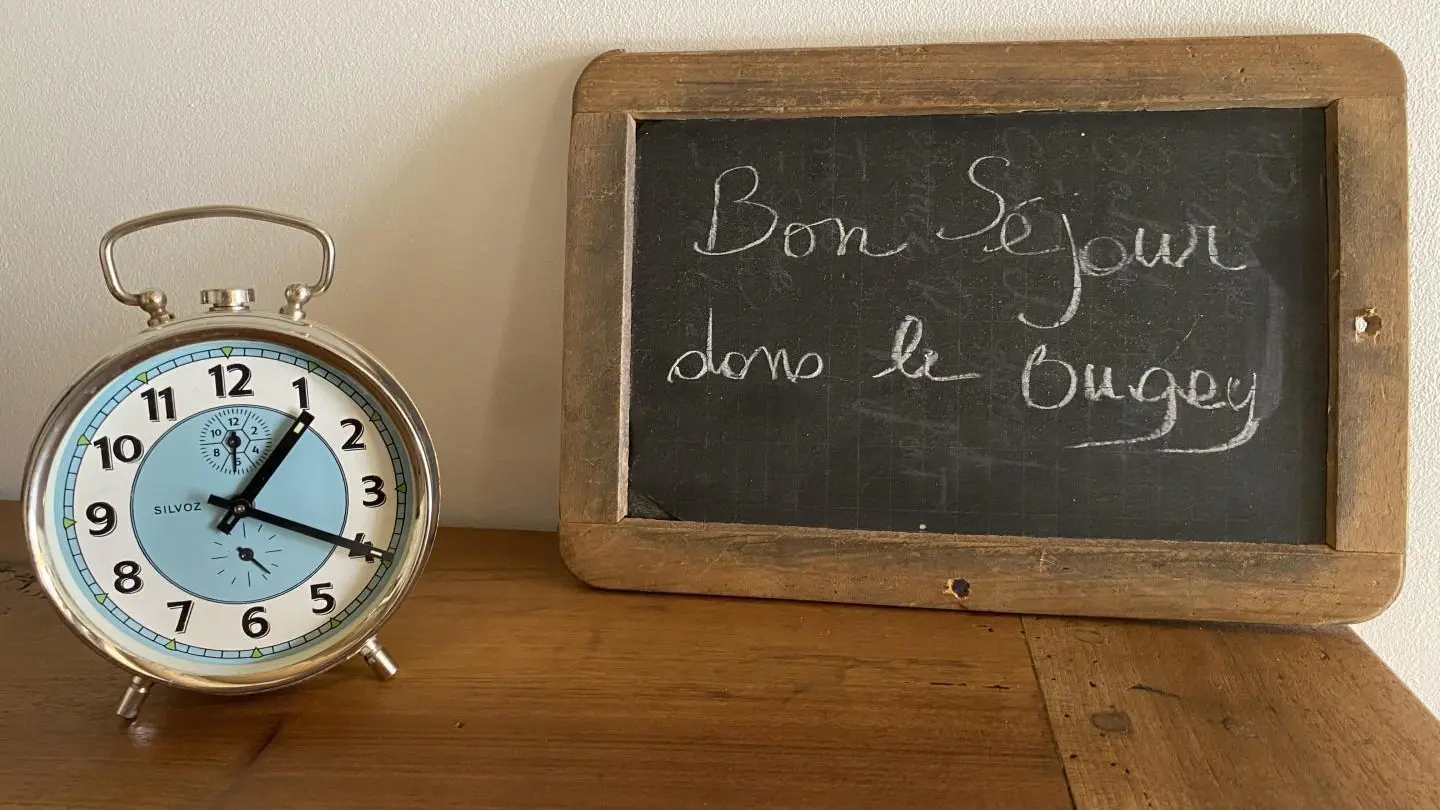 12
11 1
10 2
12
10 2
8 4
6
9 3
SILVOZ
8 4
7 5
6
Bon Séjour
dans le Bugey